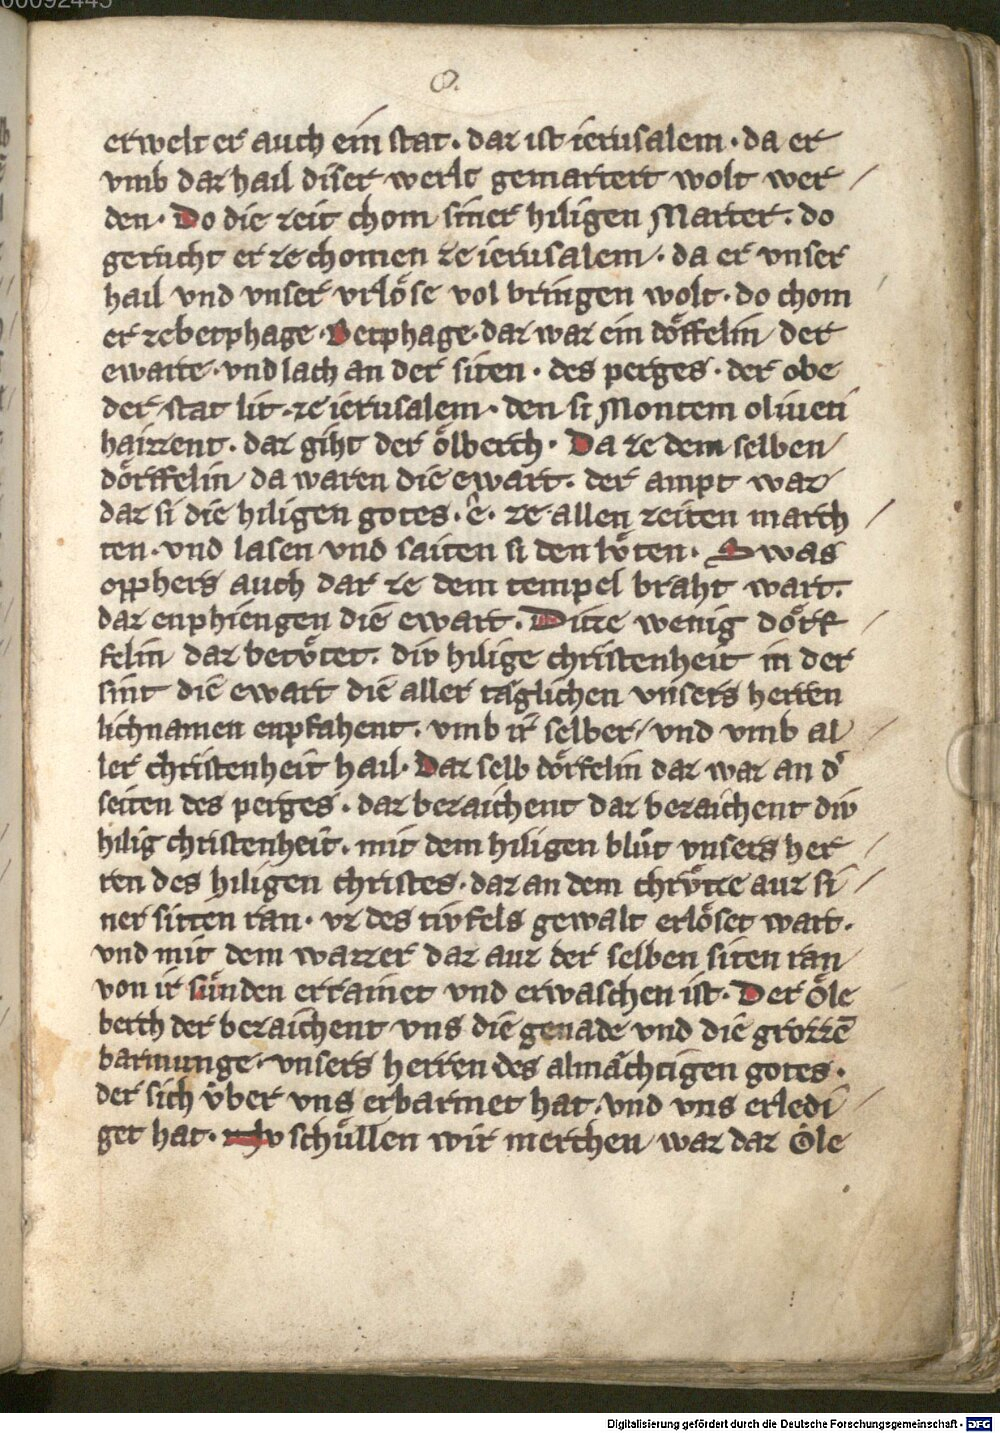 00092445
8.
erwelt er auch ein stat. daz ist ierusalem. da er
vmb daz hail diser werlt gemartert wolt wer
den. Do die zeit chom siner hiligen Marter. do
gerucht er ze chomen ze ierusalem. da er vnser
hail vnd vnser vrlöse vol bringen wolt. do chom
er ze betphage. Betphage. daz war ein döffelin der
ewarte. vnd lach an der siten. des perges. der obe
der stat lit. ze ierusalem. den si Montem oliueti
haizzent. daz giht der ölberch. Da ze dem selben
dörffelin da waren die ewart. der ampt waz
daz si die hiligen gotes. ê. ze allen zeiten march
ten. vnd lasen vnd saiten si den lvten. Swas
opphers auch dar ze dem tempel braht wart.
daz enphiengen die ewart. Ditze wenig dörf
felin daz betvtet. div hilige christenheit in der
sint die ewart die aller täglichen vnsers herren
lichnamen enpfahent. vmb ir selber, vnd vmb al
ler christenheit hail. Daz selb dörfelin daz war an dˀ
seiten des perges. daz bezaichent daz bezaichent div
hilig christenheit. mit dem hiligen blůt vnsers her
ren des hiligen christes. daz an dem chrvtze auz si
ner sitten ran. vz des tivfels gewalt erlöset wart.
vnd mit dem wazzer daz auz der selben siten ran
von ir sünden errainet vnd erwaschen ist. Der Öle
berch der bezaichent vns die genade vnd die grozzē
barmunge. vnsers herren des almächtigen gotes.
der sich vber vns erbarmet hat. vnd vns erledi
get hat. Nv schüllen wir merchen waz daz Öle
Digitalisierung gefördert durch die Deutsche Forschungsgemeinschaft - DFG